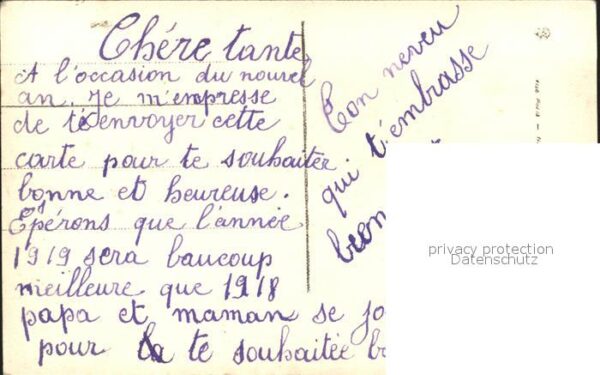 Chére tante
A l'occasion du nouvel
an. Je m'enpresse
de te envoyer cette
carte pour te souhaiter
bonne et heureuse.
Epérons que l'année
1919 sera baucoup
meilleure que 1918
papa et maman se jo
pour te souhaitée b
Ton neveu
qui t'embrasse
bien
privacy protection
Datenschutz